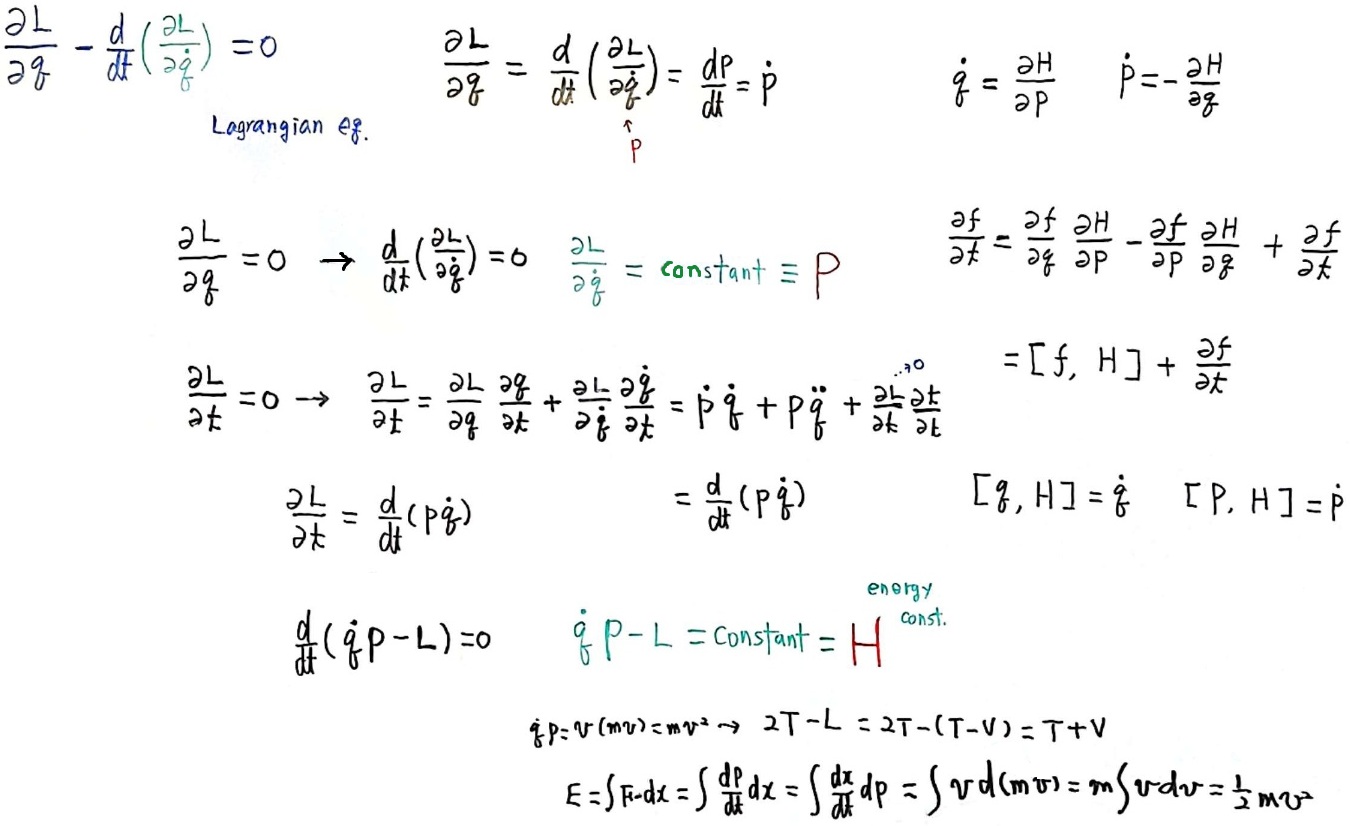 ∂L/∂q - d/dt(∂L/∂q̇) = 0
Lagrangian eq.
∂L/∂q = d/dt(∂L/∂q̇) = dp/dt = ṗ
↑
p
q̇ = ∂H/∂p ṗ = -∂H/∂q
∂L/∂q = 0 → d/dt(∂L/∂q̇) = 0 ∂L/∂q̇ = constant ≡ P
∂f/∂t = ∂f/∂q ∂H/∂p - ∂f/∂p ∂H/∂q + ∂f/∂t
= [f, H] + ∂f/∂t
∂L/∂t = 0 → ∂L/∂t = ∂L/∂q ∂q/∂t + ∂L/∂q̇ ∂q̇/∂t = ṗq̇ + pq̈ + ∂L/∂t ∂t/∂t →0
∂L/∂t = d/dt(pq̇)
= d/dt(pq̇)
[q, H] = q̇ [P, H] = ṗ
d/dt(q̇p - L) = 0 q̇p - L = constant = H
energy
const.
q̇p = v(mv) = mv² → 2T - L = 2T - (T - V) = T + V
E = ∫F·dx = ∫dp/dt dx = ∫dx/dt dp = ∫v d(mv) = m∫v dv = 1/2 mv²